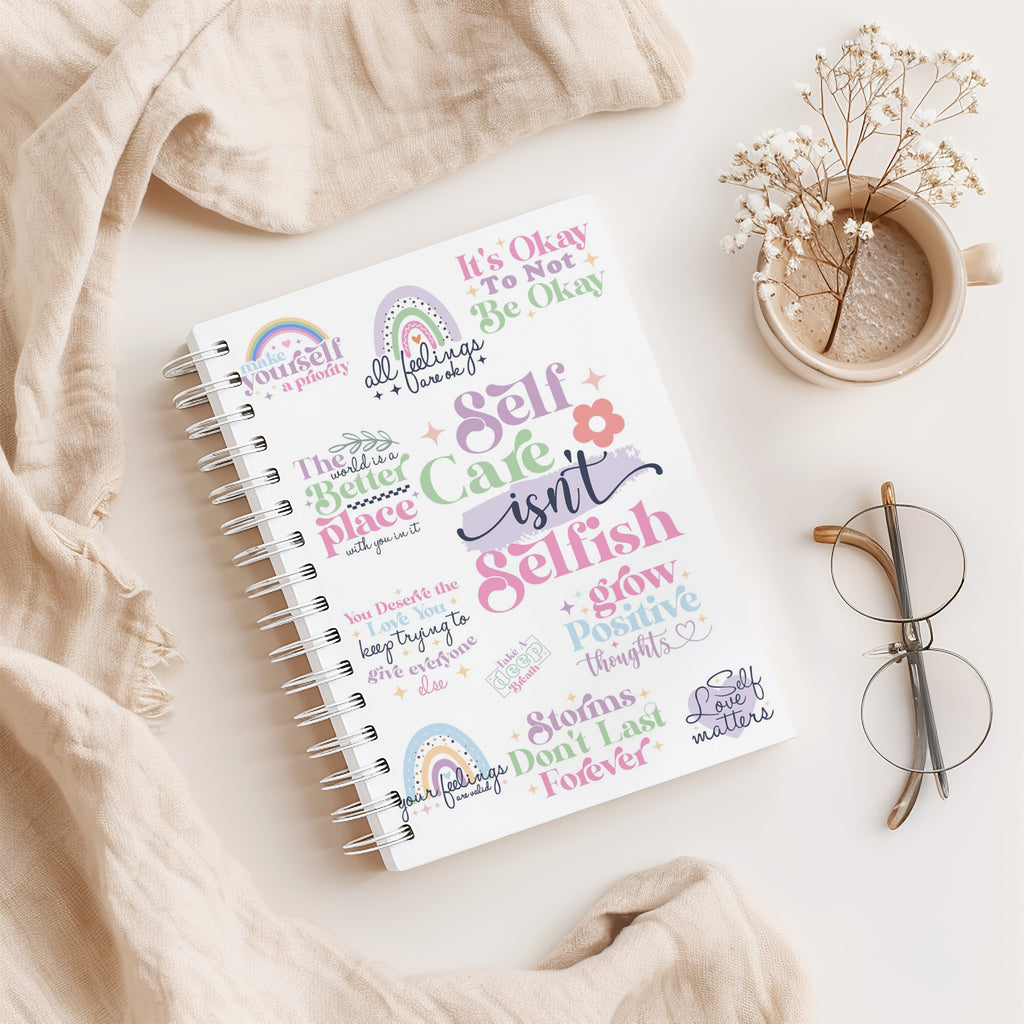 It's Okay
To Not
Be Okay
make
yourself
a priority
all feelings
are ok
Self
Care
isn't
Selfish
The
world is a
Better
place
with you in it
You Deserve the
Love You
keep trying to
give everyone
else
grow
Positive
thoughts
take
deep
Breath
Storms
Don't Last
Forever
Self
Love
matters
your feelings
are valid